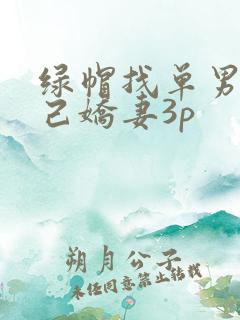 绿帽找单男
己娇妻3p
朔月公子
未经同意禁止转载